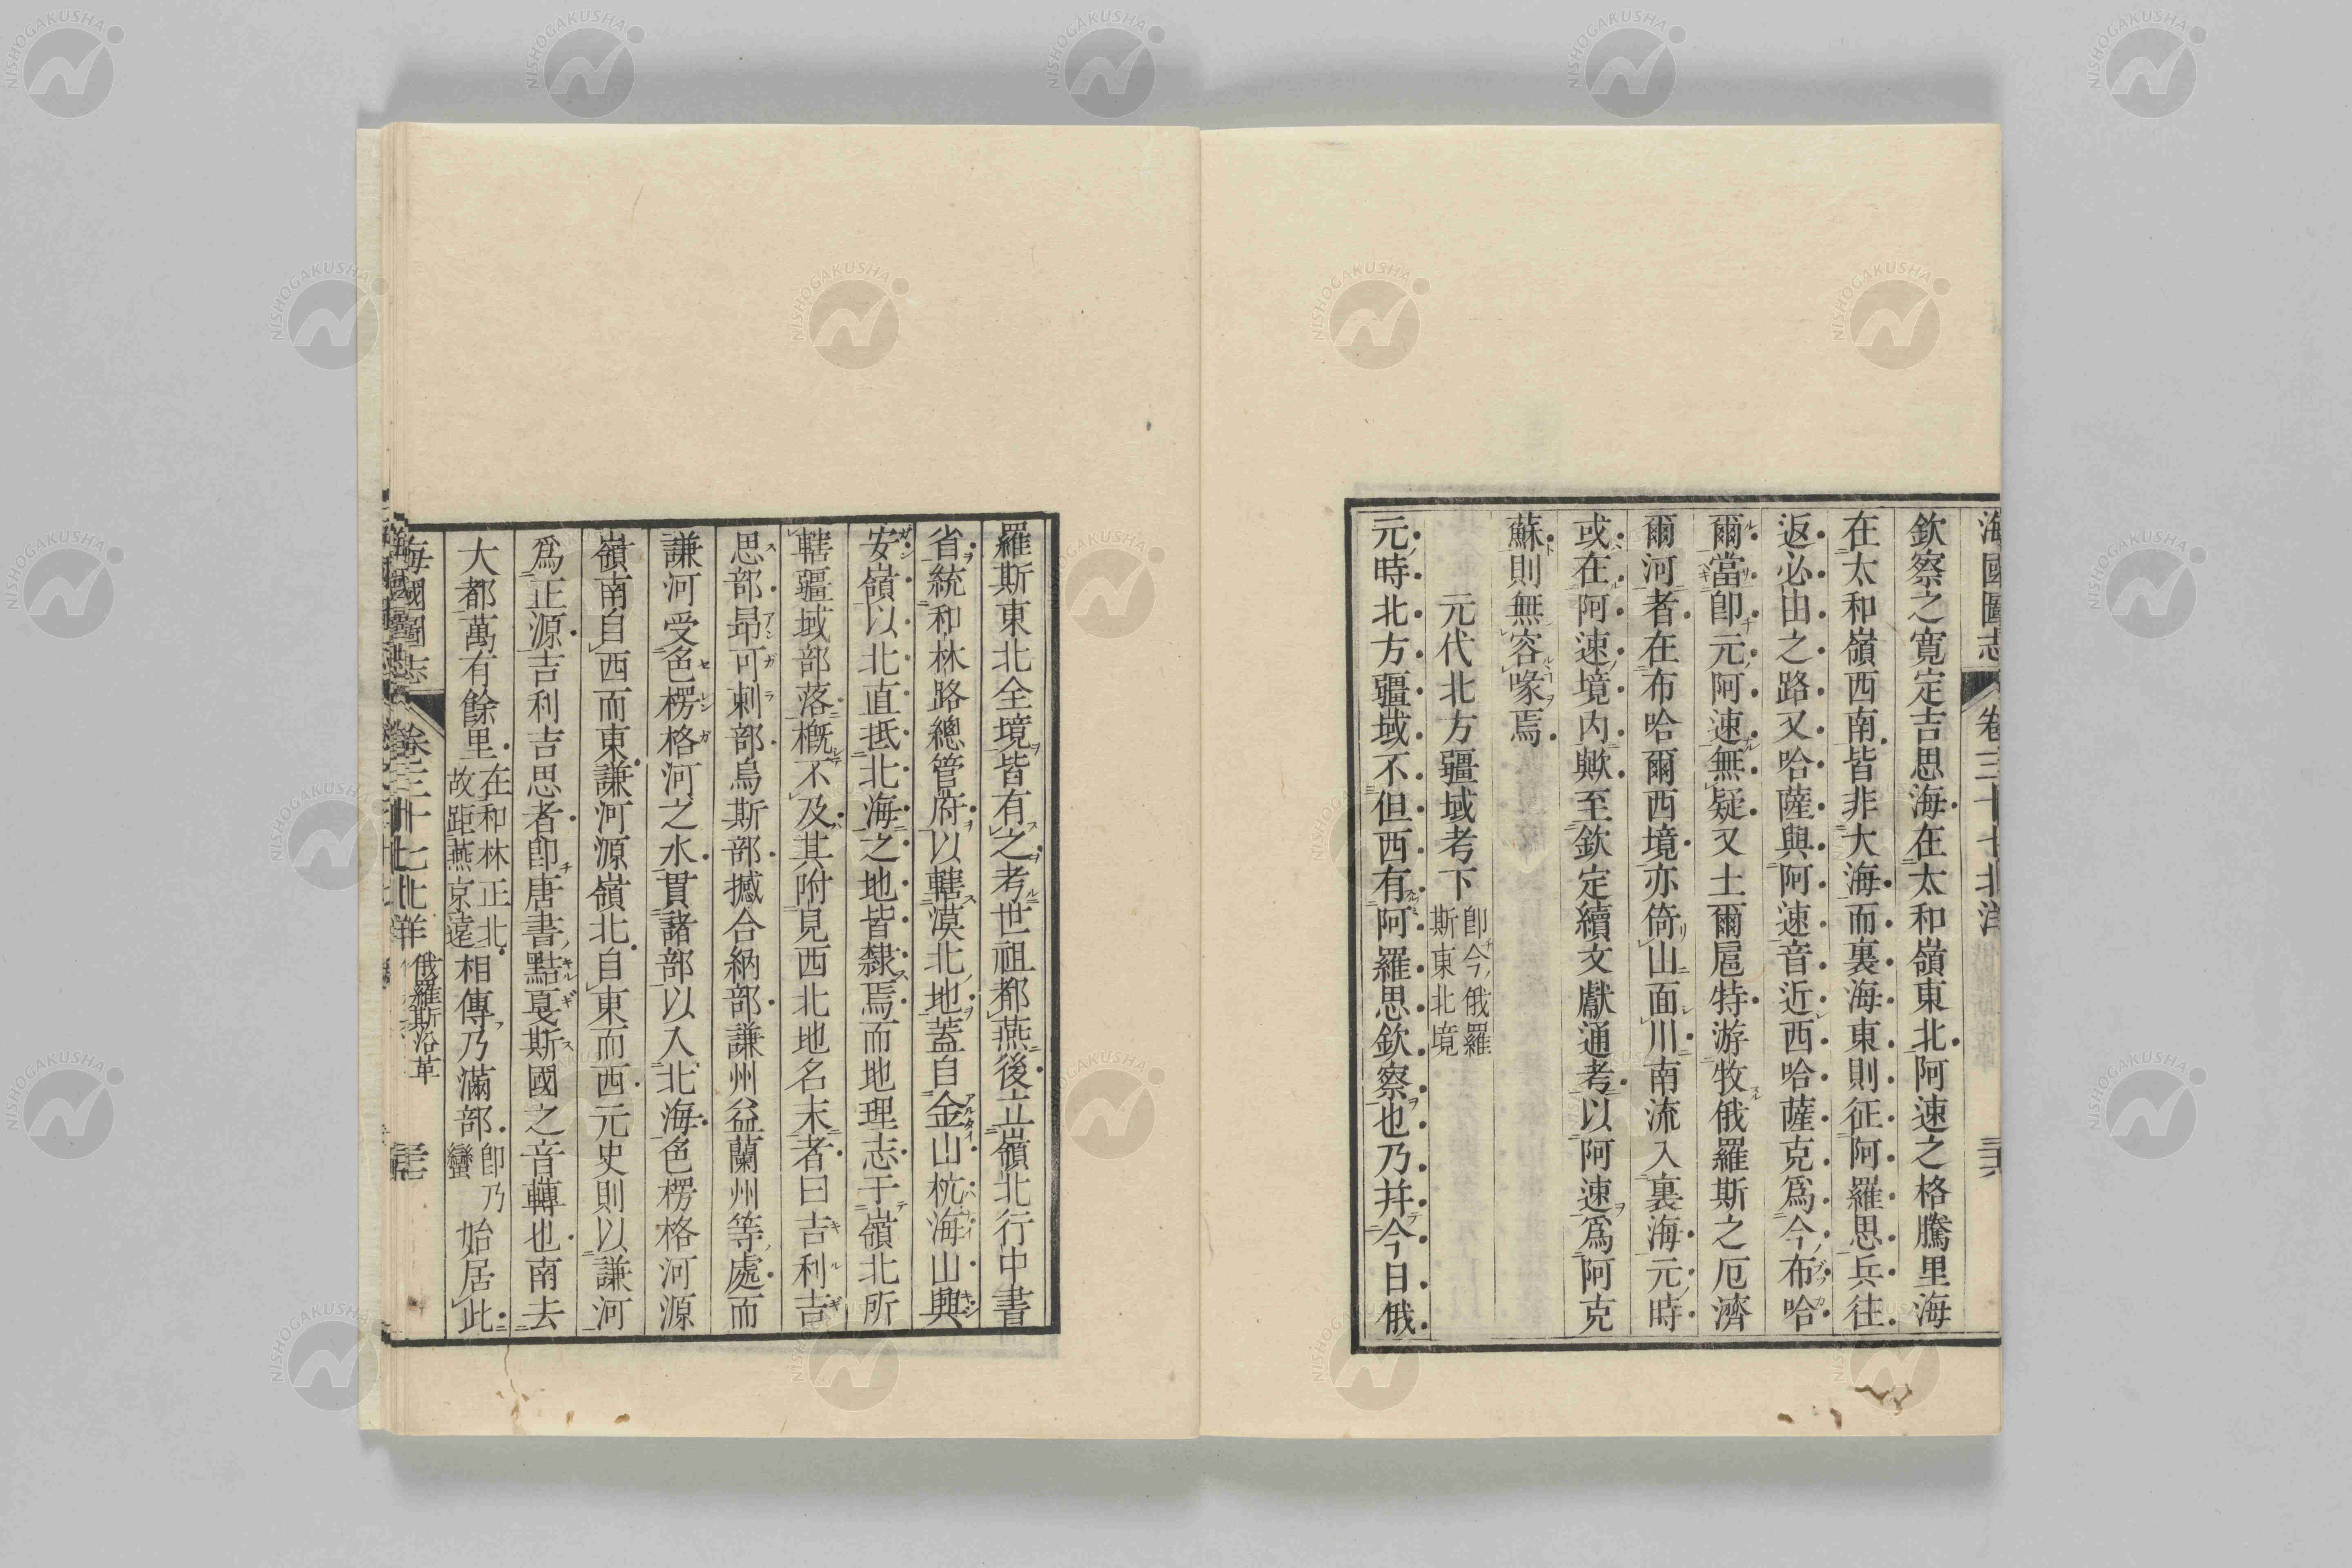 海國圖志 卷三十七 北洋
欽察之寛定吉思海在太和嶺東北阿速之格騰里海
在太和嶺西南皆非大海而裏海東則征阿羅思兵往
返必由之路又哈薩與阿速音近西哈薩克爲今布哈
爾當卽元阿速無疑又土爾扈特游牧俄羅斯之厄濟
爾河者在布哈爾西境亦倚山面川南流入裏海元時
或在阿速境内歟至欽定續文獻通考以阿速爲阿克
蘇則無容喙焉
元代北方疆域考下 卽今俄羅斯東北境
元時北方疆域不但西有阿羅思欽察也乃并今日俄
羅斯東北全境皆有之考世祖都燕後立嶺北行中書
省統和林路總管府以轄漠北地蓋自金山杭海山興
安嶺以北直抵北海之地皆隸焉而地理志于嶺北所
轄疆域部落槪不及其附見西北地名末者曰吉利吉
思部昻可剌部烏斯部撼合納部謙州益蘭州等處而
謙河受色楞格河之水貫諸部以入北海色楞格河源
嶺南自西而東謙河源嶺北自東而西元史則以謙河
爲正源吉利吉思者卽唐書黠戛斯國之音轉也南去
大都萬有餘里在和林正北故距燕京遠相傳乃滿部卽乃蠻始居此
海國圖志 卷三十七 北洋 俄羅斯沿革